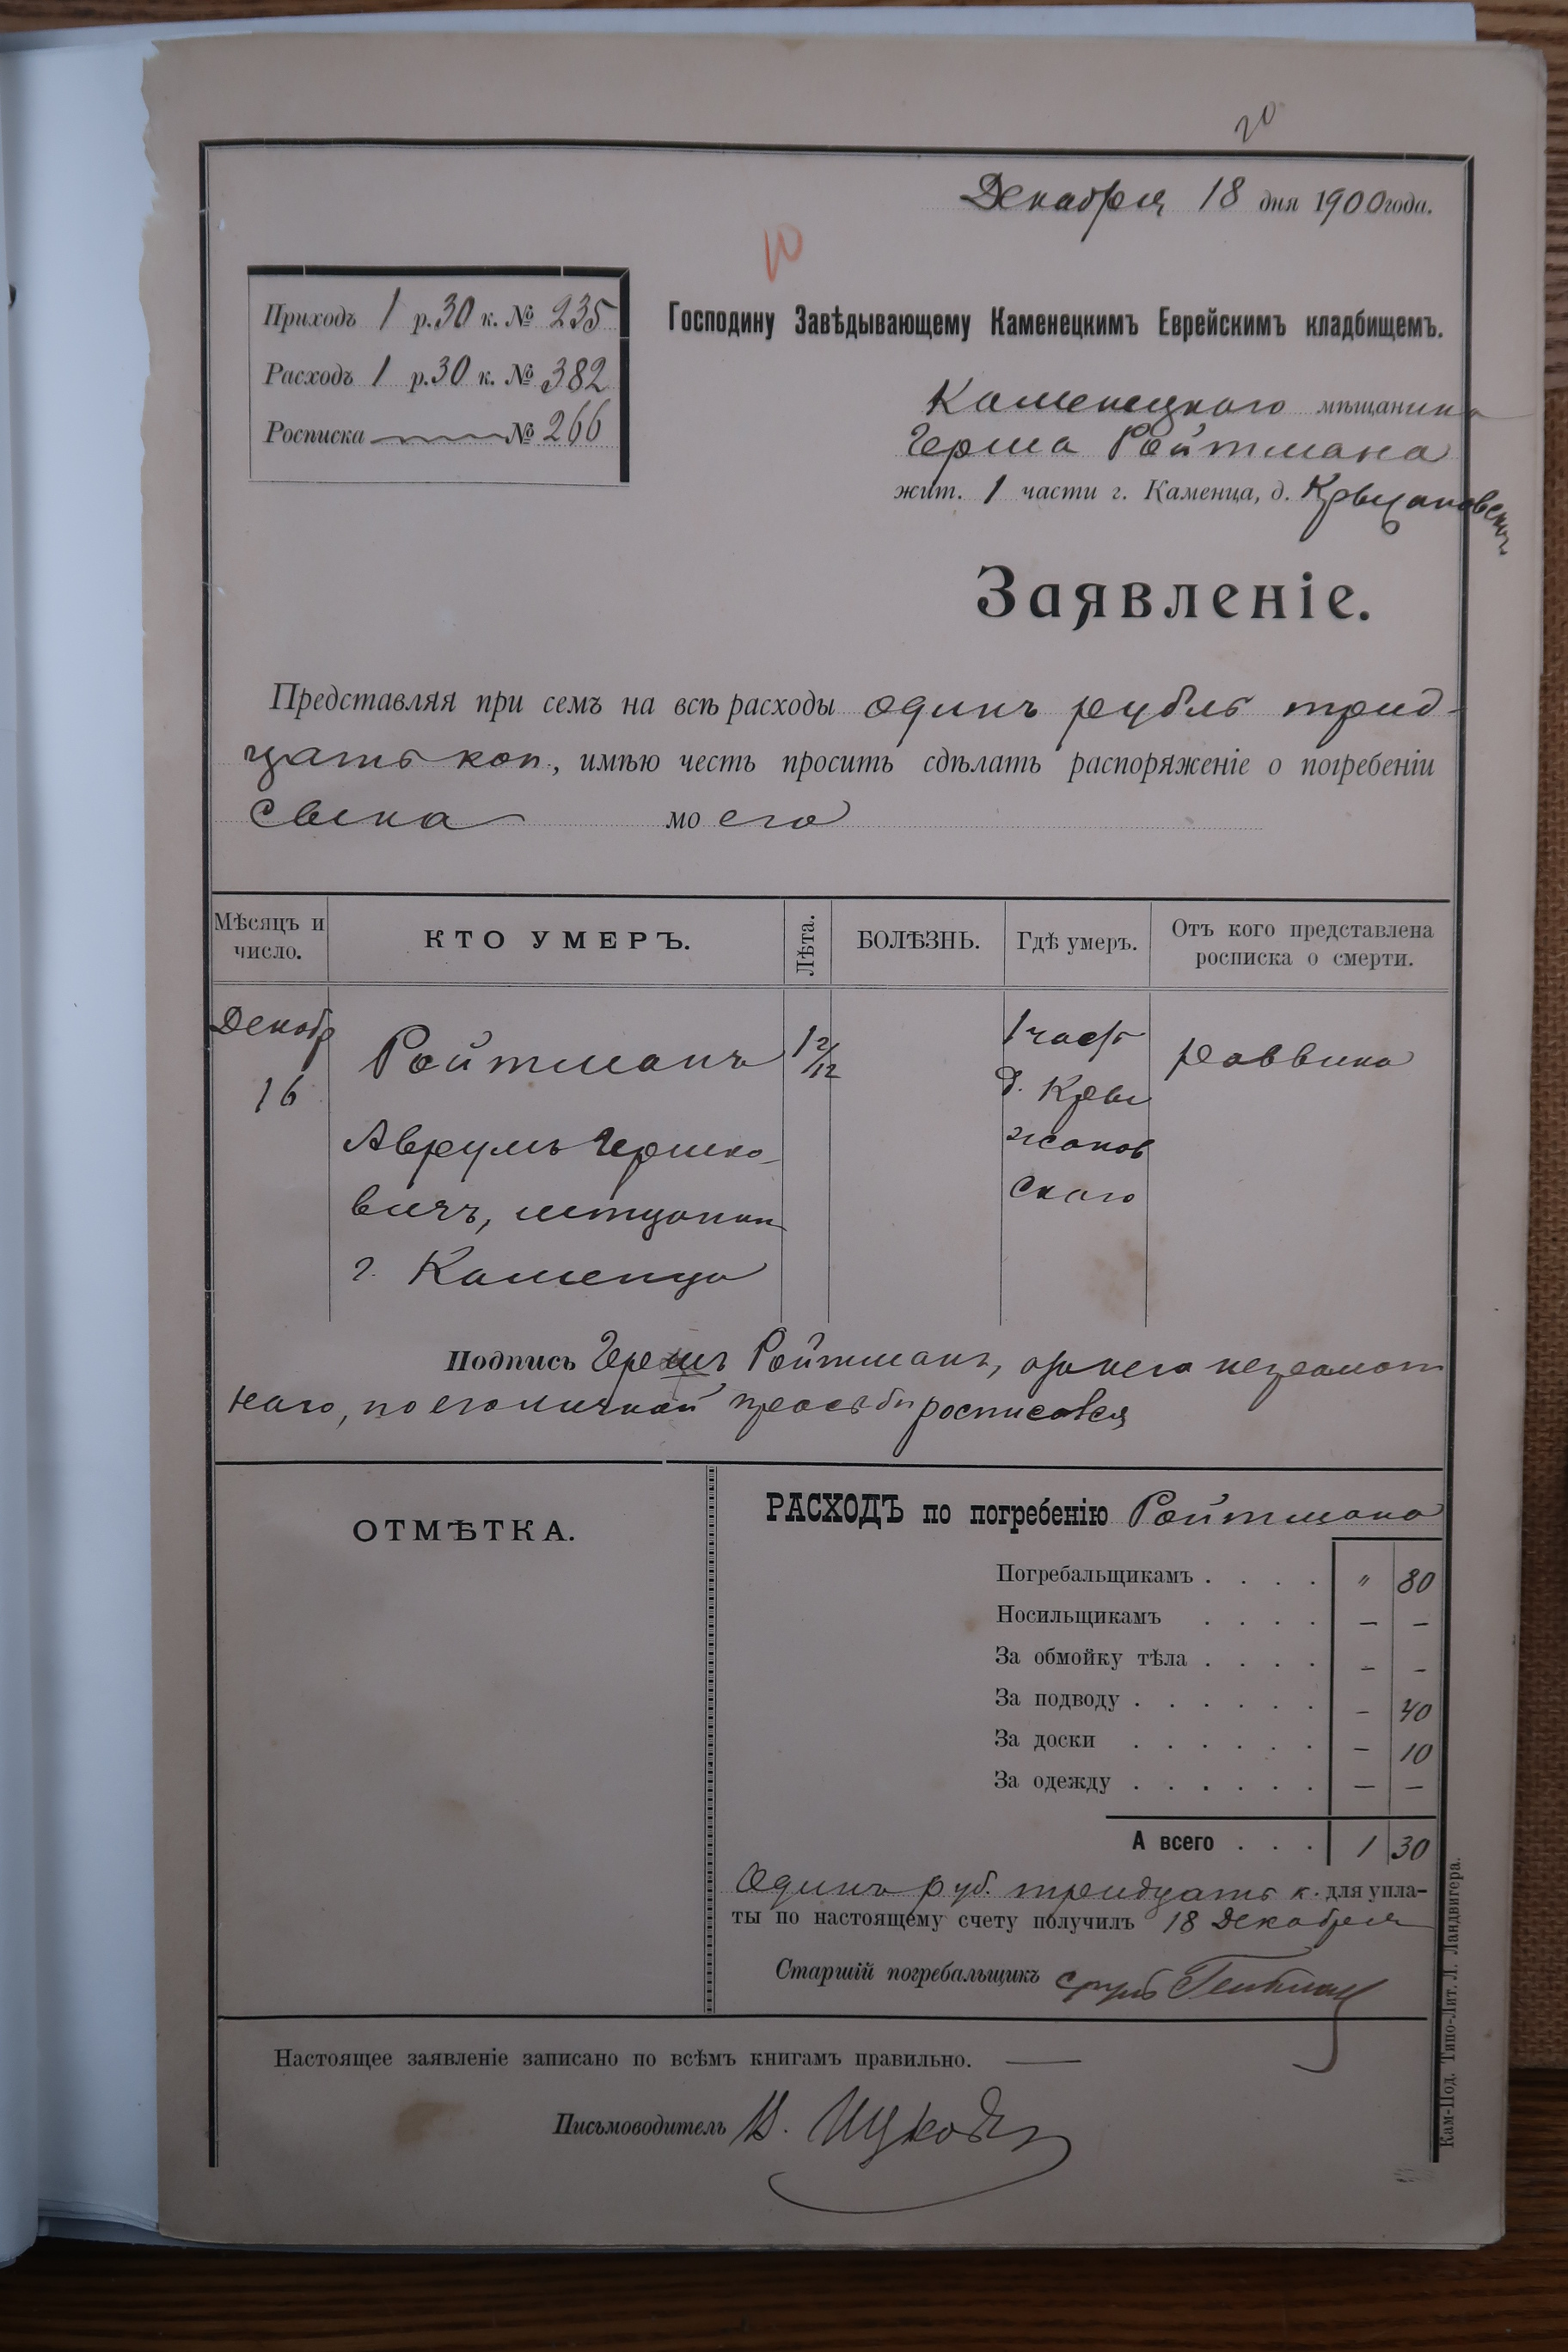 20
Декабря 18 дня 1900 года.
10
Приходъ 1 р. 30 к. № 235
Расходъ 1 р. 30 к. № 382
Росписка № 266
Господину Завѣдывающему Каменецкимъ Еврейскимъ кладбищемъ.
Каменецкаго мѣщанина
Герша Ройтмана
жит. 1 части г. Каменца, д.
Заявленіе.
Представляя при семъ на всѣ расходы одинъ рубль трид-
цать коп., имѣю честь просить сдѣлать распоряженіе о погребеніи
сына моего
Мѣсяцъ и число.
КТО УМЕРЪ.
Лѣта.
БОЛѢЗНЬ.
Гдѣ умеръ.
Отъ кого представлена росписка о смерти.
Декабр
16
Ройтманъ
Аврумъ Гершко-
вичъ, мѣщанин
г. Каменца
1 2/12
1 част
д. Кры
жанов
скаго
раввина
Подпись Гершъ Ройтманъ, а за него неграмот
наго, по его личной просьбѣ росписался
ОТМѢТКА.
РАСХОДЪ по погребенію Ройтмана
Погребальщикамъ . . . . „ 80
Носильщикамъ . . . . — —
За обмойку тѣла . . . . — —
За подводу . . . . . . — 40
За доски . . . . . . — 10
За одежду . . . . . . — —
А всего . . . 1 30
Одинъ руб. тридцать к. для упла-
ты по настоящему счету получилъ 18 Декабря
Старшій погребальщикъ
Настоящее заявленіе записано по всѣмъ книгамъ правильно. —
Письмоводитель
Кам-Под. Типо-Лит. Л. Ландвигера.